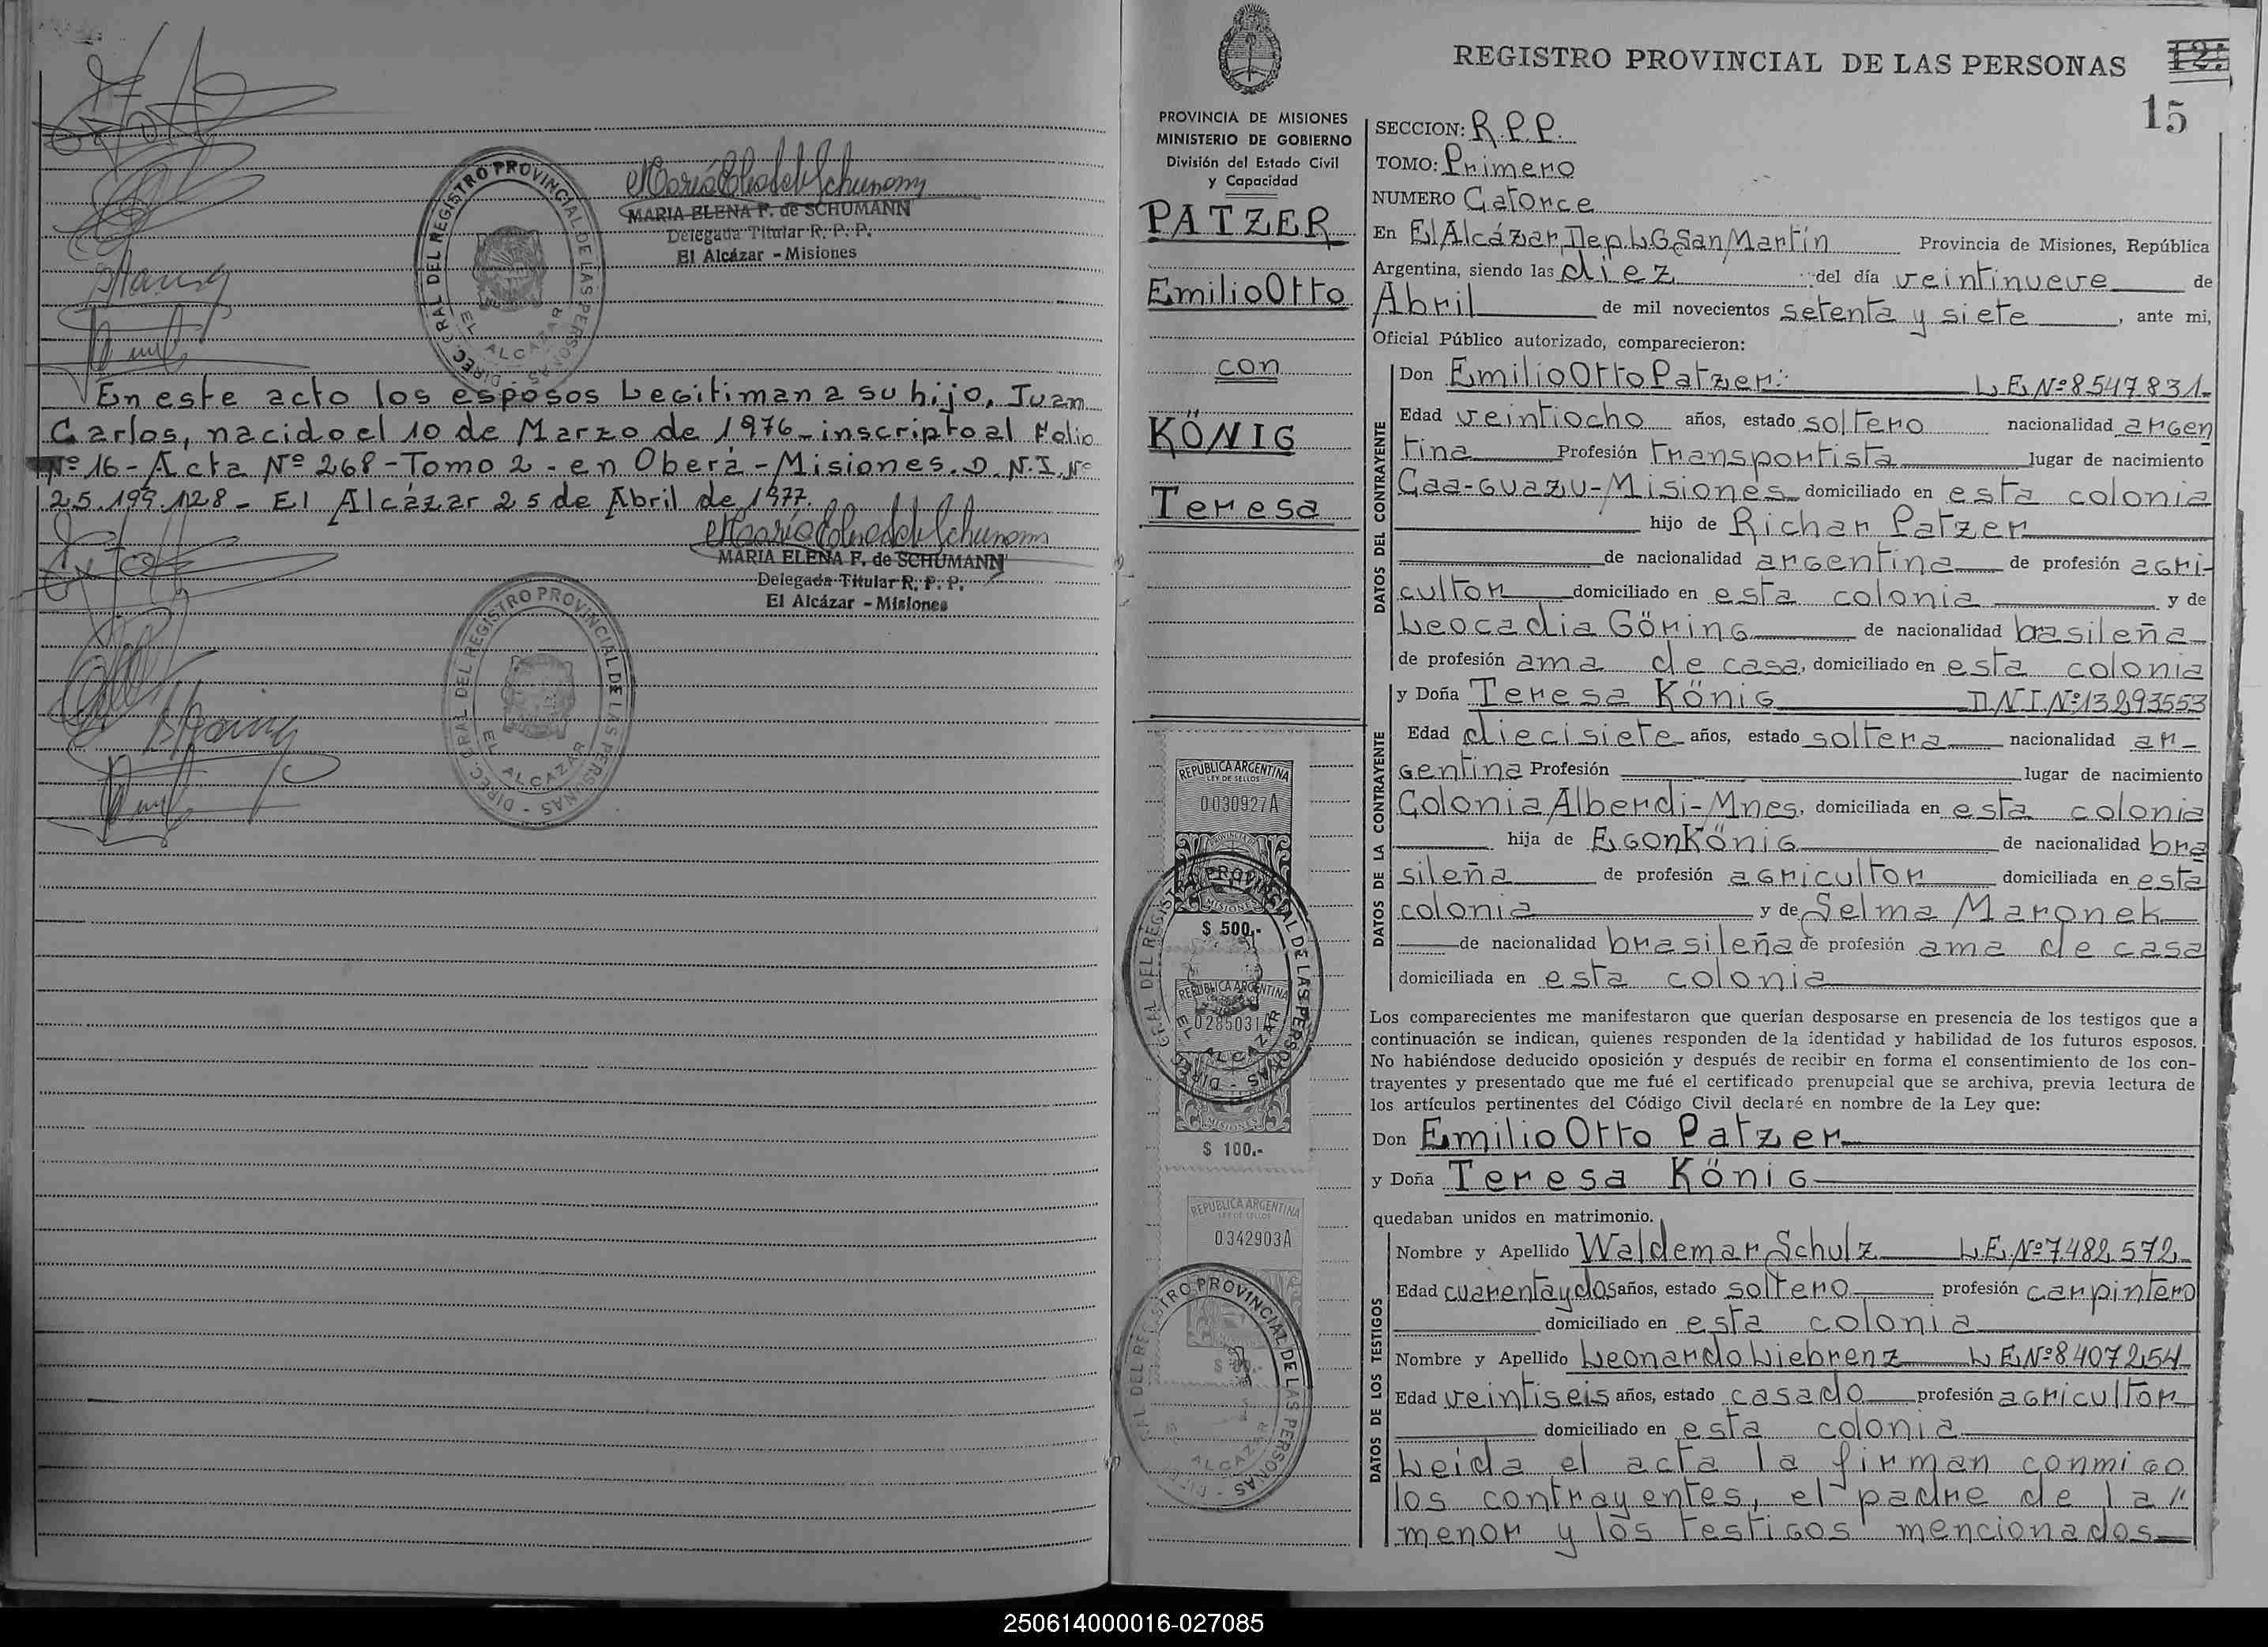 MARIA ELENA F. de SCHUMANN
Delegada Titular R. P. P.
El Alcázar - Misiones
DIREC. GRAL DEL REGISTRO PROVINCIAL DE LAS PERSONAS
EL ALCAZAR
En este acto los esposos Legitiman a su hijo, Juan
Carlos, nacido el 10 de Marzo de 1976 - inscripto al Folio
Nº 16 - Acta Nº 268 - Tomo 2 - en Oberá - Misiones. D.N.I. Nº
25.199.128 - El Alcázar 25 de Abril de 1977.
MARIA ELENA F. de SCHUMANN
Delegada Titular R. P. P.
El Alcázar - Misiones
DIREC. GRAL DEL REGISTRO PROVINCIAL DE LAS PERSONAS
EL ALCAZAR
REGISTRO PROVINCIAL DE LAS PERSONAS
15
PROVINCIA DE MISIONES
MINISTERIO DE GOBIERNO
División del Estado Civil
y Capacidad
PATZER
Emilio Otto
con
KÖNIG
Teresa
REPUBLICA ARGENTINA
LEY DE SELLOS
0030927A
PROVINCIA DE
MISIONES
$ 500.-
REPUBLICA ARGENTINA
0285031A
MISIONES
$ 100.-
REPUBLICA ARGENTINA
LEY DE SELLOS
0342903A
SECCION: R.P.P.
TOMO: Primero
NUMERO Catorce
En El Alcázar, Dep. L.G. San Martín Provincia de Misiones, República
Argentina, siendo las diez del día veintinueve de
Abril de mil novecientos setenta y siete, ante mi,
Oficial Público autorizado, comparecieron:
DATOS DEL CONTRAYENTE
Don Emilio Otto Patzer: L.E. Nº 8547831-
Edad veintiocho años, estado soltero nacionalidad argen
tina Profesión transportista lugar de nacimiento
Caa-Guazu-Misiones domiciliado en esta colonia
hijo de Richar Patzer
de nacionalidad argentina de profesión agri-
cultor domiciliado en esta colonia y de
Leocadia Göring de nacionalidad brasileña
de profesión ama de casa, domiciliado en esta colonia
DATOS DE LA CONTRAYENTE
y Doña Teresa König D.N.I. Nº 13293553
Edad diecisiete años, estado soltera nacionalidad ar-
gentina Profesión lugar de nacimiento
Colonia Alberdi-Mnes, domiciliada en esta colonia
hija de Egon König de nacionalidad bra
sileña de profesión agricultor domiciliada en esta
colonia y de Selma Maronek
de nacionalidad brasileña de profesión ama de casa
domiciliada en esta colonia
Los comparecientes me manifestaron que querían desposarse en presencia de los testigos que a
continuación se indican, quienes responden de la identidad y habilidad de los futuros esposos.
No habiéndose deducido oposición y después de recibir en forma el consentimiento de los con-
trayentes y presentado que me fué el certificado prenupcial que se archiva, previa lectura de
los artículos pertinentes del Código Civil declaré en nombre de la Ley que:
Don Emilio Otto Patzer
y Doña Teresa König
quedaban unidos en matrimonio.
DATOS DE LOS TESTIGOS
Nombre y Apellido Waldemar Schulz L.E. Nº 7.482.572
Edad cuarenta y dos años, estado soltero profesión carpintero
domiciliado en esta colonia
Nombre y Apellido Leonardo Liebrenz L.E. Nº 8407254
Edad veintiseis años, estado casado profesión agricultor
domiciliado en esta colonia
Leida el acta la firman conmigo
los contrayentes, el padre de la "
menor y los testigos mencionados
250614000016-027085